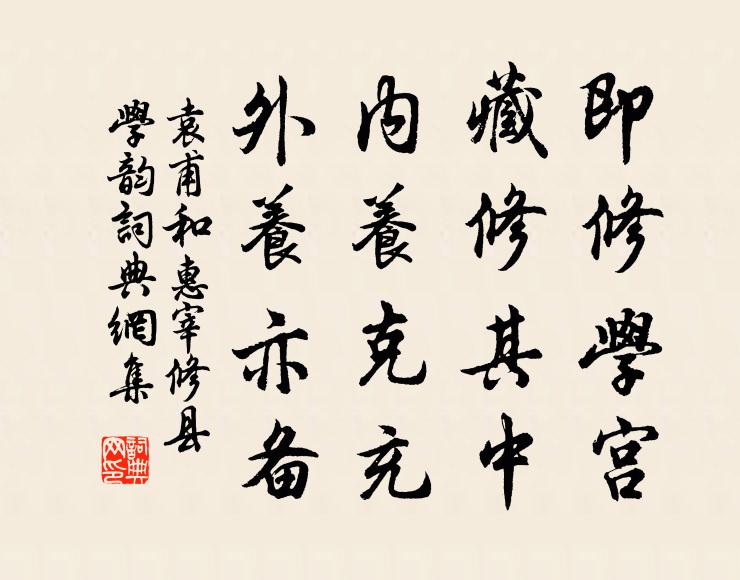 即修學宮
藏修其中
内養克充
外養亦备
袁甫和惠宰修县
學韵詞典網集
詞典網印